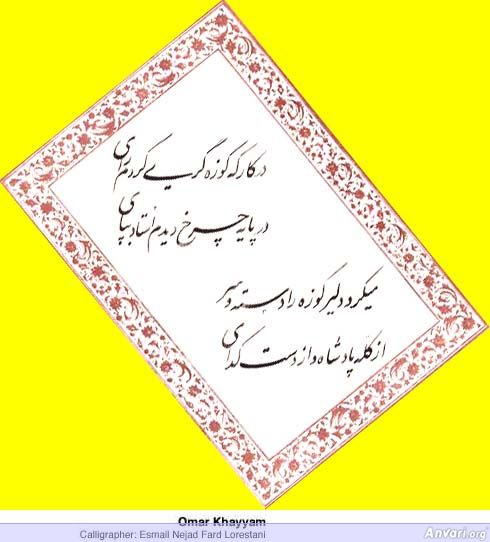 در کارگه کوزه گری کردم رای
در پایه چرخ دیدم استاد بپای
میکرد دلیر کوزه را دسته و سر
از کله پادشاه و از دست گدای
Omar Khayyam
Calligrapher: Esmail Nejad Fard Lorestani
Anvari.org